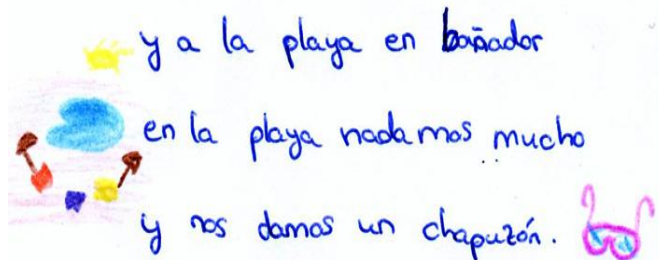 y a la playa en bañador
en la playa nadamos mucho
y nos damos un chapuzón.